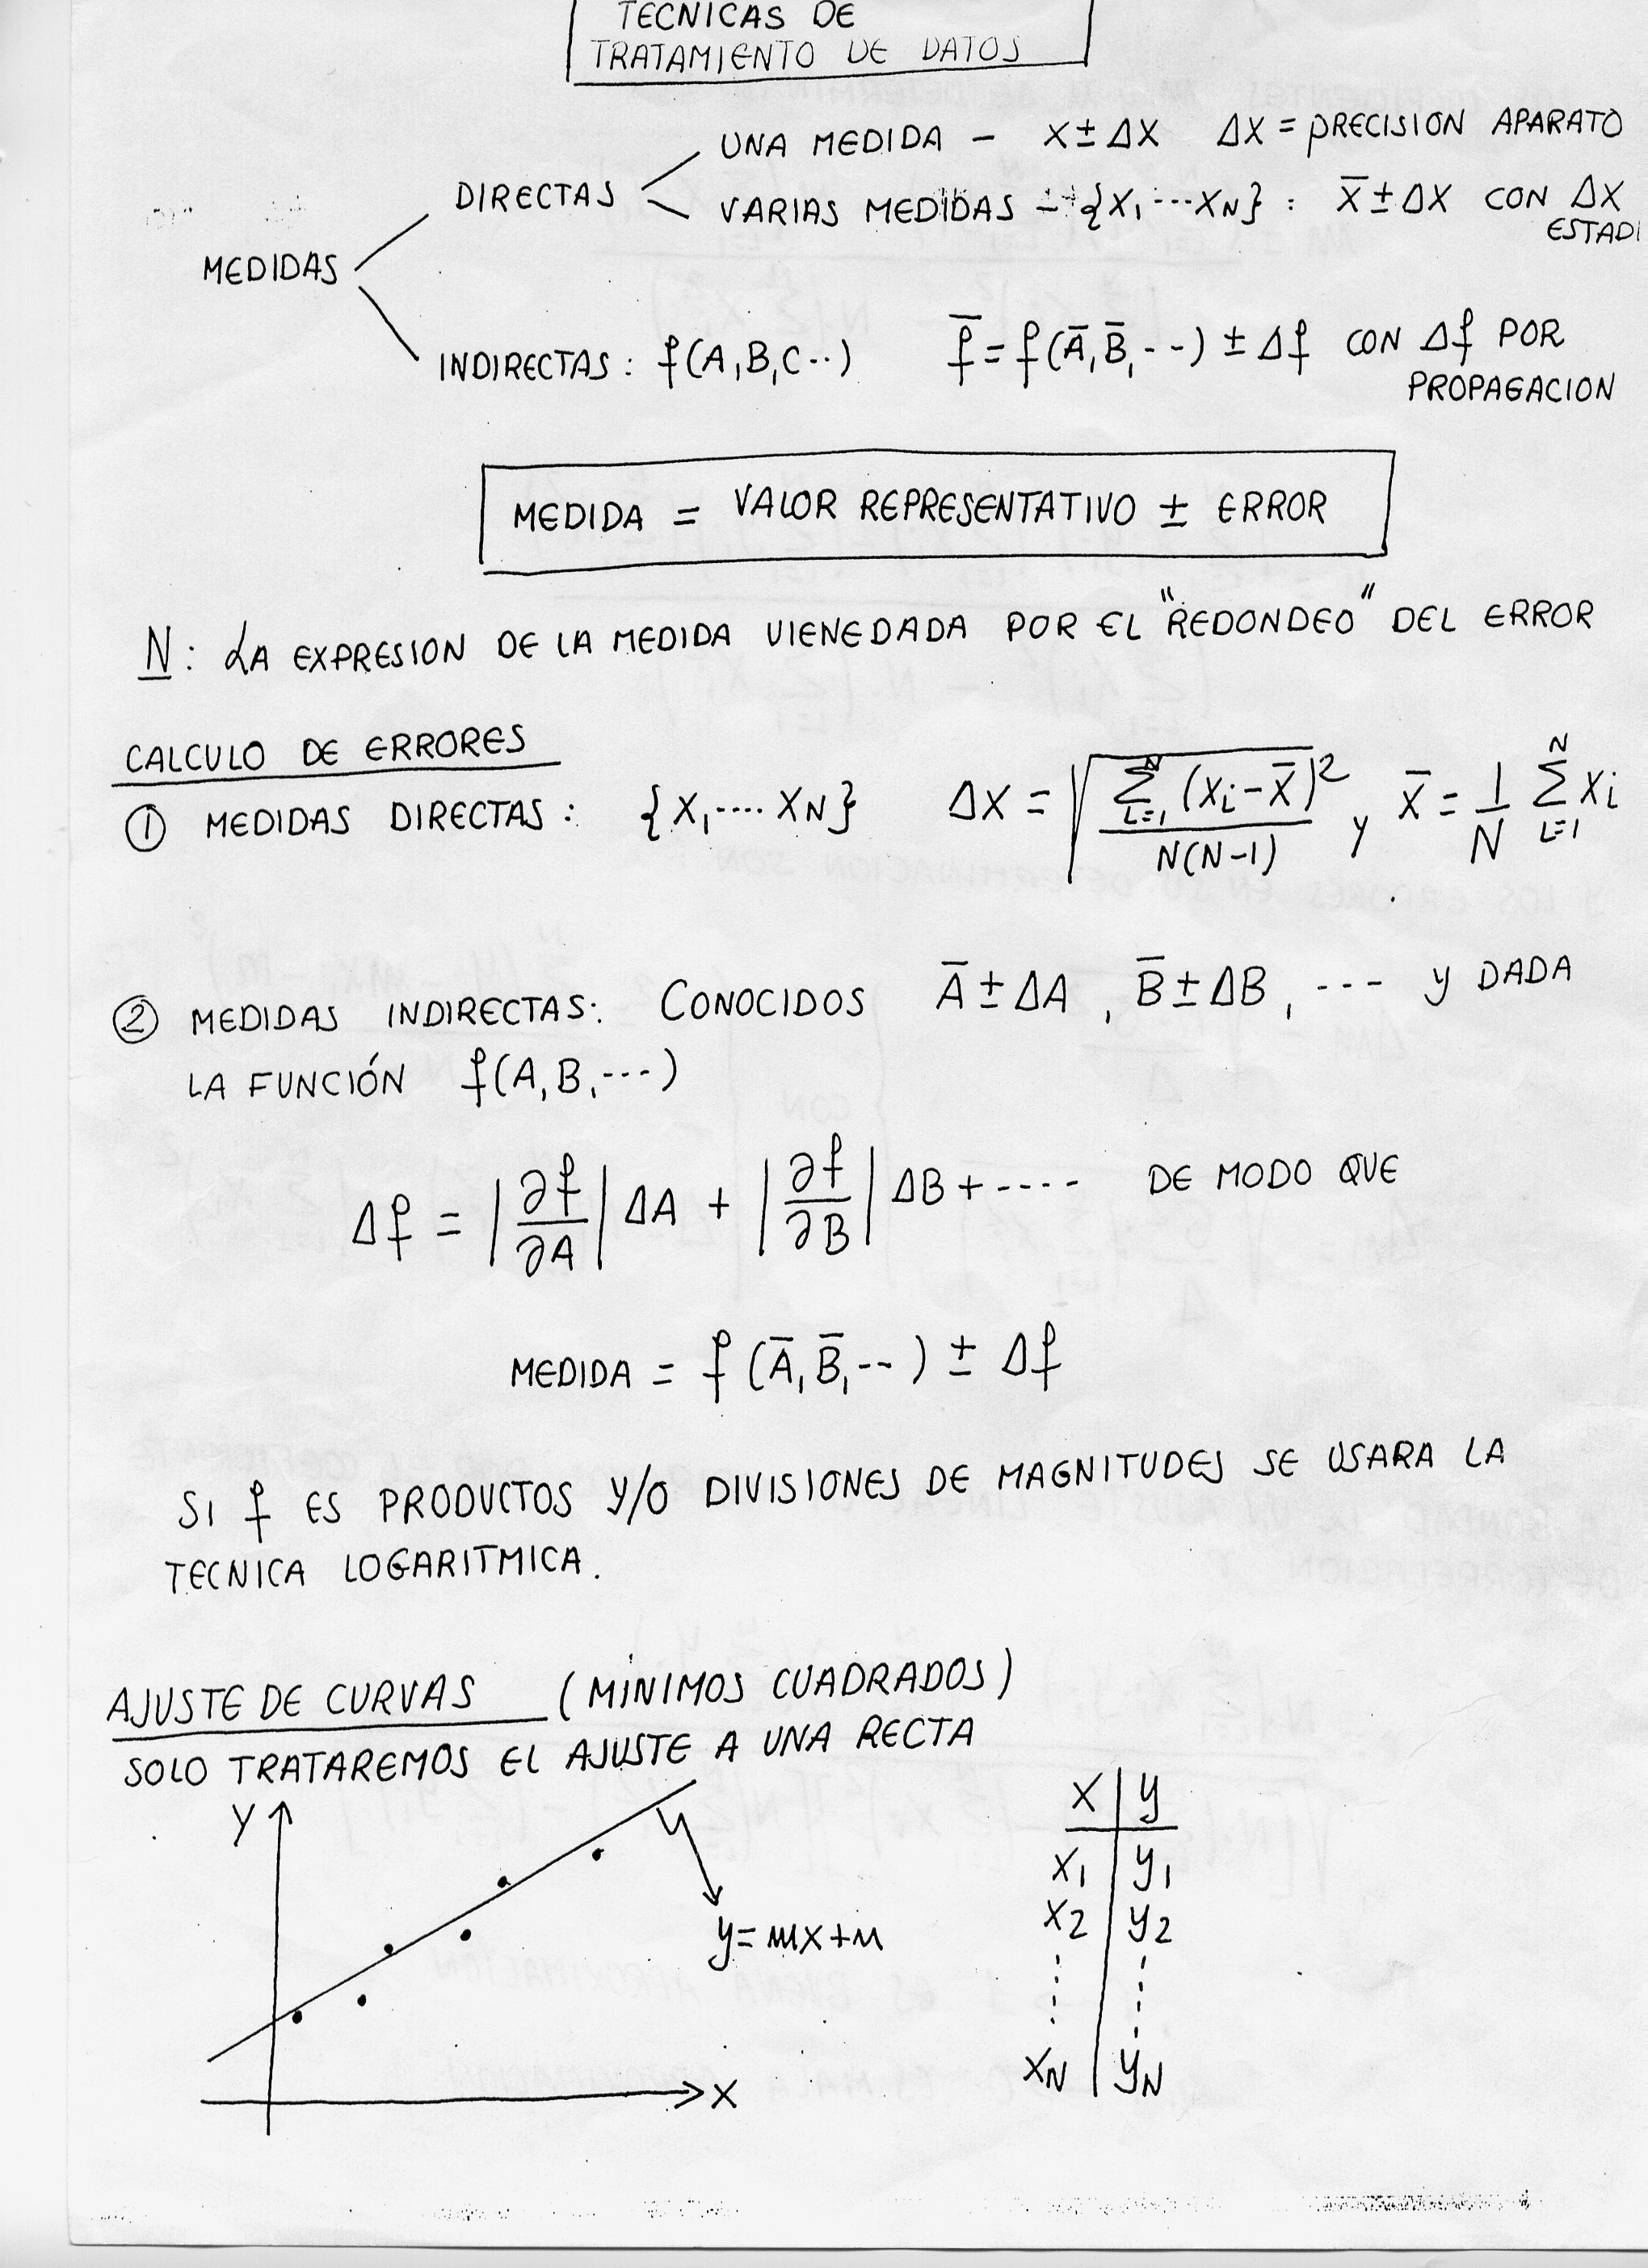 TECNICAS DE
TRATAMIENTO DE DATOS
UNA MEDIDA - X ± ΔX ΔX = PRECISION APARATO
DIRECTAS
VARIAS MEDIDAS - {X₁ ··· X_N} : X̄ ± ΔX CON ΔX
ESTADI
MEDIDAS
INDIRECTAS : f(A,B,C··) f̄ = f(Ā,B̄,--) ± Δf CON Δf POR
PROPAGACION
MEDIDA = VALOR REPRESENTATIVO ± ERROR
N: LA EXPRESION DE LA MEDIDA VIENE DADA POR EL "REDONDEO" DEL ERROR
CALCULO DE ERRORES
① MEDIDAS DIRECTAS : {X₁ ···· X_N} ΔX = √(∑_{i=1}^{N} (x_i - x̄)² / N(N-1)) , y X̄ = 1/N ∑_{i=1}^{N} x_i
② MEDIDAS INDIRECTAS: CONOCIDOS Ā ± ΔA , B̄ ± ΔB , --- y DADA
LA FUNCIÓN f(A,B,---)
Δf = |∂f/∂A| ΔA + |∂f/∂B| ΔB + ---- DE MODO QUE
MEDIDA = f(Ā,B̄,--) ± Δf
SI f ES PRODUCTOS Y/O DIVISIONES DE MAGNITUDES SE USARA LA
TECNICA LOGARITMICA.
AJUSTE DE CURVAS (MINIMOS CUADRADOS)
SOLO TRATAREMOS EL AJUSTE A UNA RECTA
Y
y = mx + n
X
X | y
x₁ | y₁
x₂ | y₂
x_N | y_N